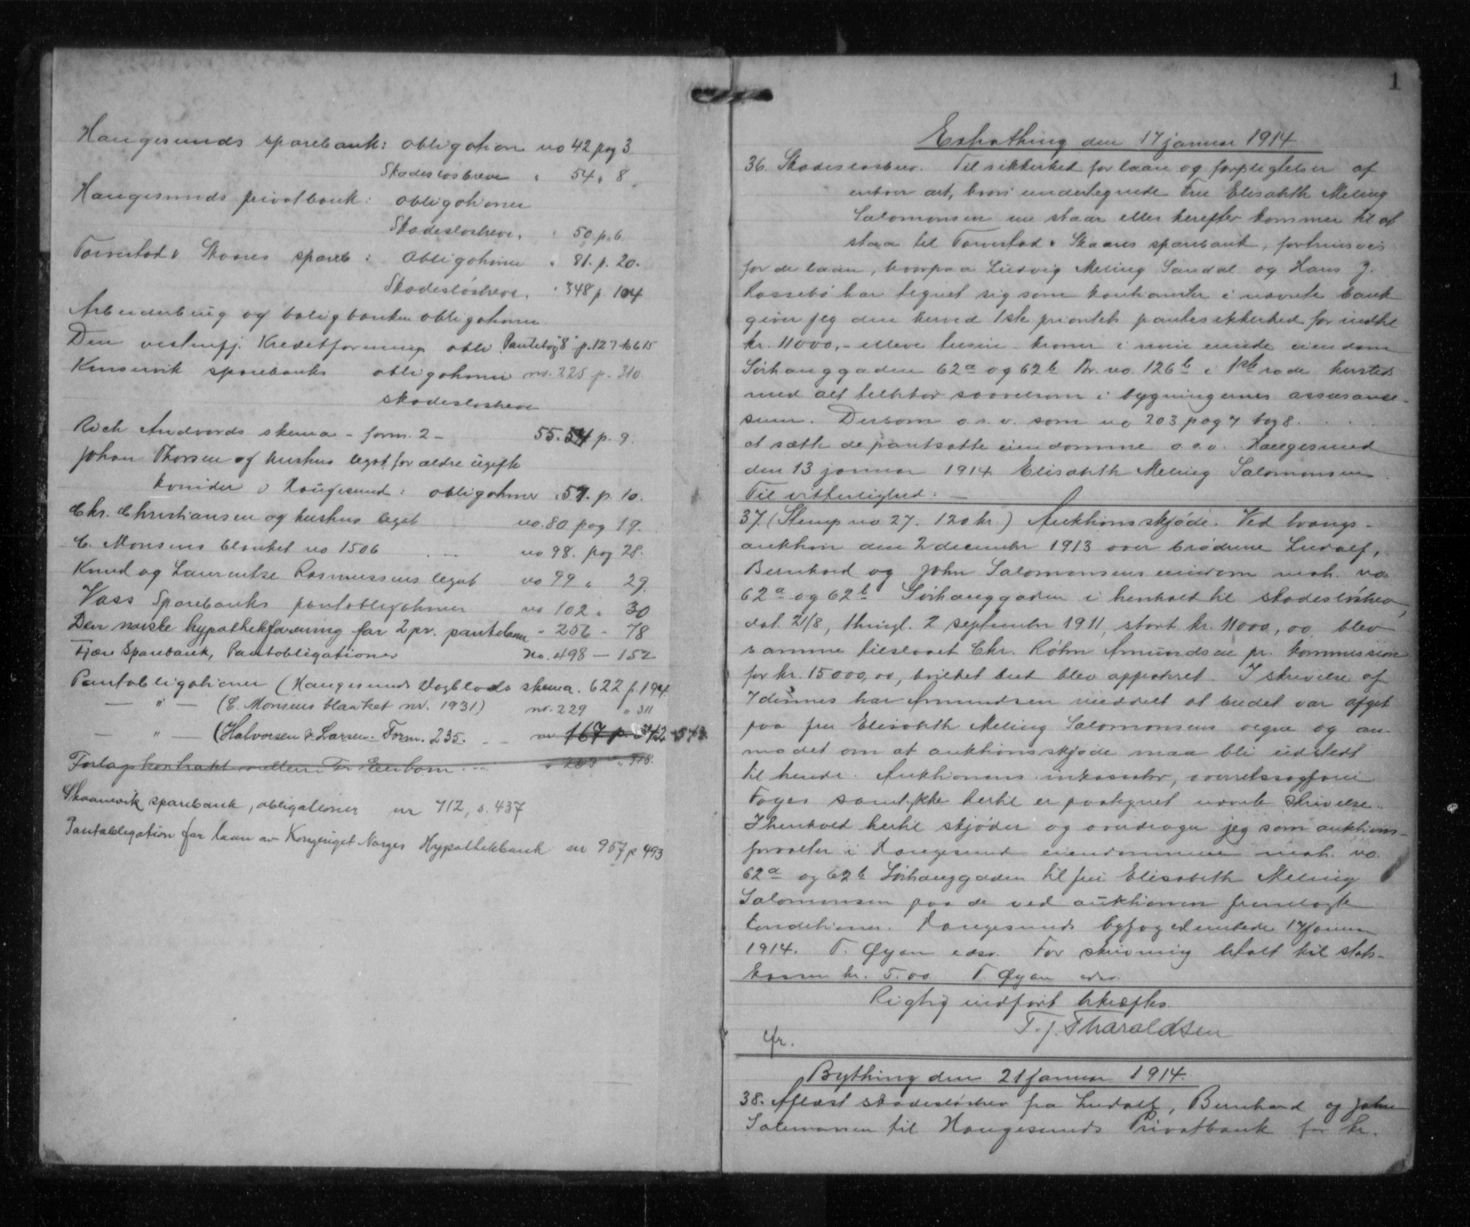 Haugesunds sparebank: obligation no 42 pag 3
Skadesløsbreve " 54 " 8
Haugesunds privatbank: obligationer
Skadesløsbreve " 50 p. 6
Torvestad & Skaares spareb: obligationer " 81. p. 20.
Skadesløsbreve " 348 p. 104
Arbeiderbrug og boligbanken obligationer
Den vestenfj. Kreditforening obli Pantebog "8" p. 127 no 615
Kinservik sparebanks obligationer no. 225 p. 310
skadesløsbreve
Rich Andvords skema - form. 2 - 55. 54 p. 9.
Johan Thorsen og hustrus legat for ældre ugifte
kvinder i Haugesund: obligationer 57. p. 10.
Chr. Christiansen og hustrus legat no. 80 pag 19.
E. Monsens blanket no 1506 no 98. pag 28.
Knud og Laurentse Rasmussens legat no 99 " 29
Voss Sparebanks pantobligationer no 102 " 30
Den norske hypothekforening for 2 pr. pantelaan - 256 - 78
Tjøre Sparebank, Pantobligationer No. 498 - 152
Pantobligationer (Haugesunds Dagblads skema. 622 p 194
— " — (E. Monsens blanket nr. 1931) nr. 229 " 311
— " — (Halvorsen & Larsen. Form. 235. nr 167 p 372
Skaanevik sparebank, obligationer nr 712, s. 437
Pantobligation for laan av Kongeriget Norges Hypothekbank nr 957 p 493
1
Extrathing den 17 januar 1914
36. Skadesløsbrev. Til sikkerhet for laan og forpligtelser af
enhver art, hvori undertegnede fru Elisabeth Meling
Salomonsen nu staar eller herefter kommer til at
staa til Torvestad & Skaares sparebank, fortrinsvis
for de laan, hvorpaa Ludvig Meling Sandal og Hans J.
Rossebø har tegnet sig som kautionister i nævnte bank
giver jeg den herved 1ste prioritets pantesikkerhed for indtil
kr. 11000,- elleve tusin kroner i min eiende eiendom
Sørhauggaden 62a og 62b Br. no 126b i 1ste rode herstes
med alt tilbehør saavelsom i bygningernes assurance-
sum. Dersom o.s.v. som no 203 pag 7 bog 8.
at sætte de pantsatte eiendomme o.s.v. Haugesund
den 13 januar 1914 Elisabeth Meling Salomonsen
Til vitterlighed: —
37. (Stemp no 27. 120 kr.) Auktionsskjøde. Ved tvangs-
auktion den 2 december 1913 over brødrene Ludolf,
Bernhard og John Salomonsens eiendom matr. no
62a og 62b Sørhauggaden i henhold til skadesløsbrev,
dat. 21/8, thingl. 2 september 1911, stort kr. 11000,00 blev
samme tilslaaet Chr. Røhn Amundsen pr. kommission
for kr. 15000,00, hvilket bud blev approbert. I skrivelse af
7 dennes har Amundsen meddelt at budet var afgit
paa fru Elisabeth Meling Salomonsens vegne og an-
modet om at auktionsskjøde maa bli udstedt
til hende. Auktionens inkassator, overretssagfører
Foyes samtykke hertil er paategnet nævnte skrivelse.
I henhold hertil skjøder og overdrager jeg som auktions-
forvalter i Haugesund eiendommen matr. no.
62a og 62b Sørhauggaden til fru Elisabeth Meling
Salomonsen paa de ved auktionen fremlagte
konditioner. Haugesunds byfogedembede 17 januar
1914. T. Øyan edsv. For skrivning betalt til stats-
kassen kr. 5.00 T. Øyan edsv.
Rigtig indført bekræftes
T. J. Tharaldsen
Bything den 21 januar 1914.
38. Aflæst skadesløsbrev fra Ludolf, Bernhard og John
Salomonsen til Haugesunds Privatbank for kr.